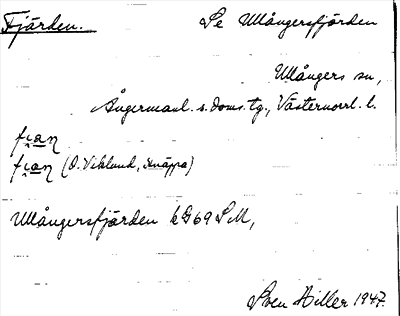 Fjärden. Se Ullångersfjärden
Ullångers sn,
Ångermanl. s. doms. tg., Västernorrl. l.
(O. Viklund, Knäppa)
Ullångersfjärden k G69 SM,
Sven Hiller 1947.